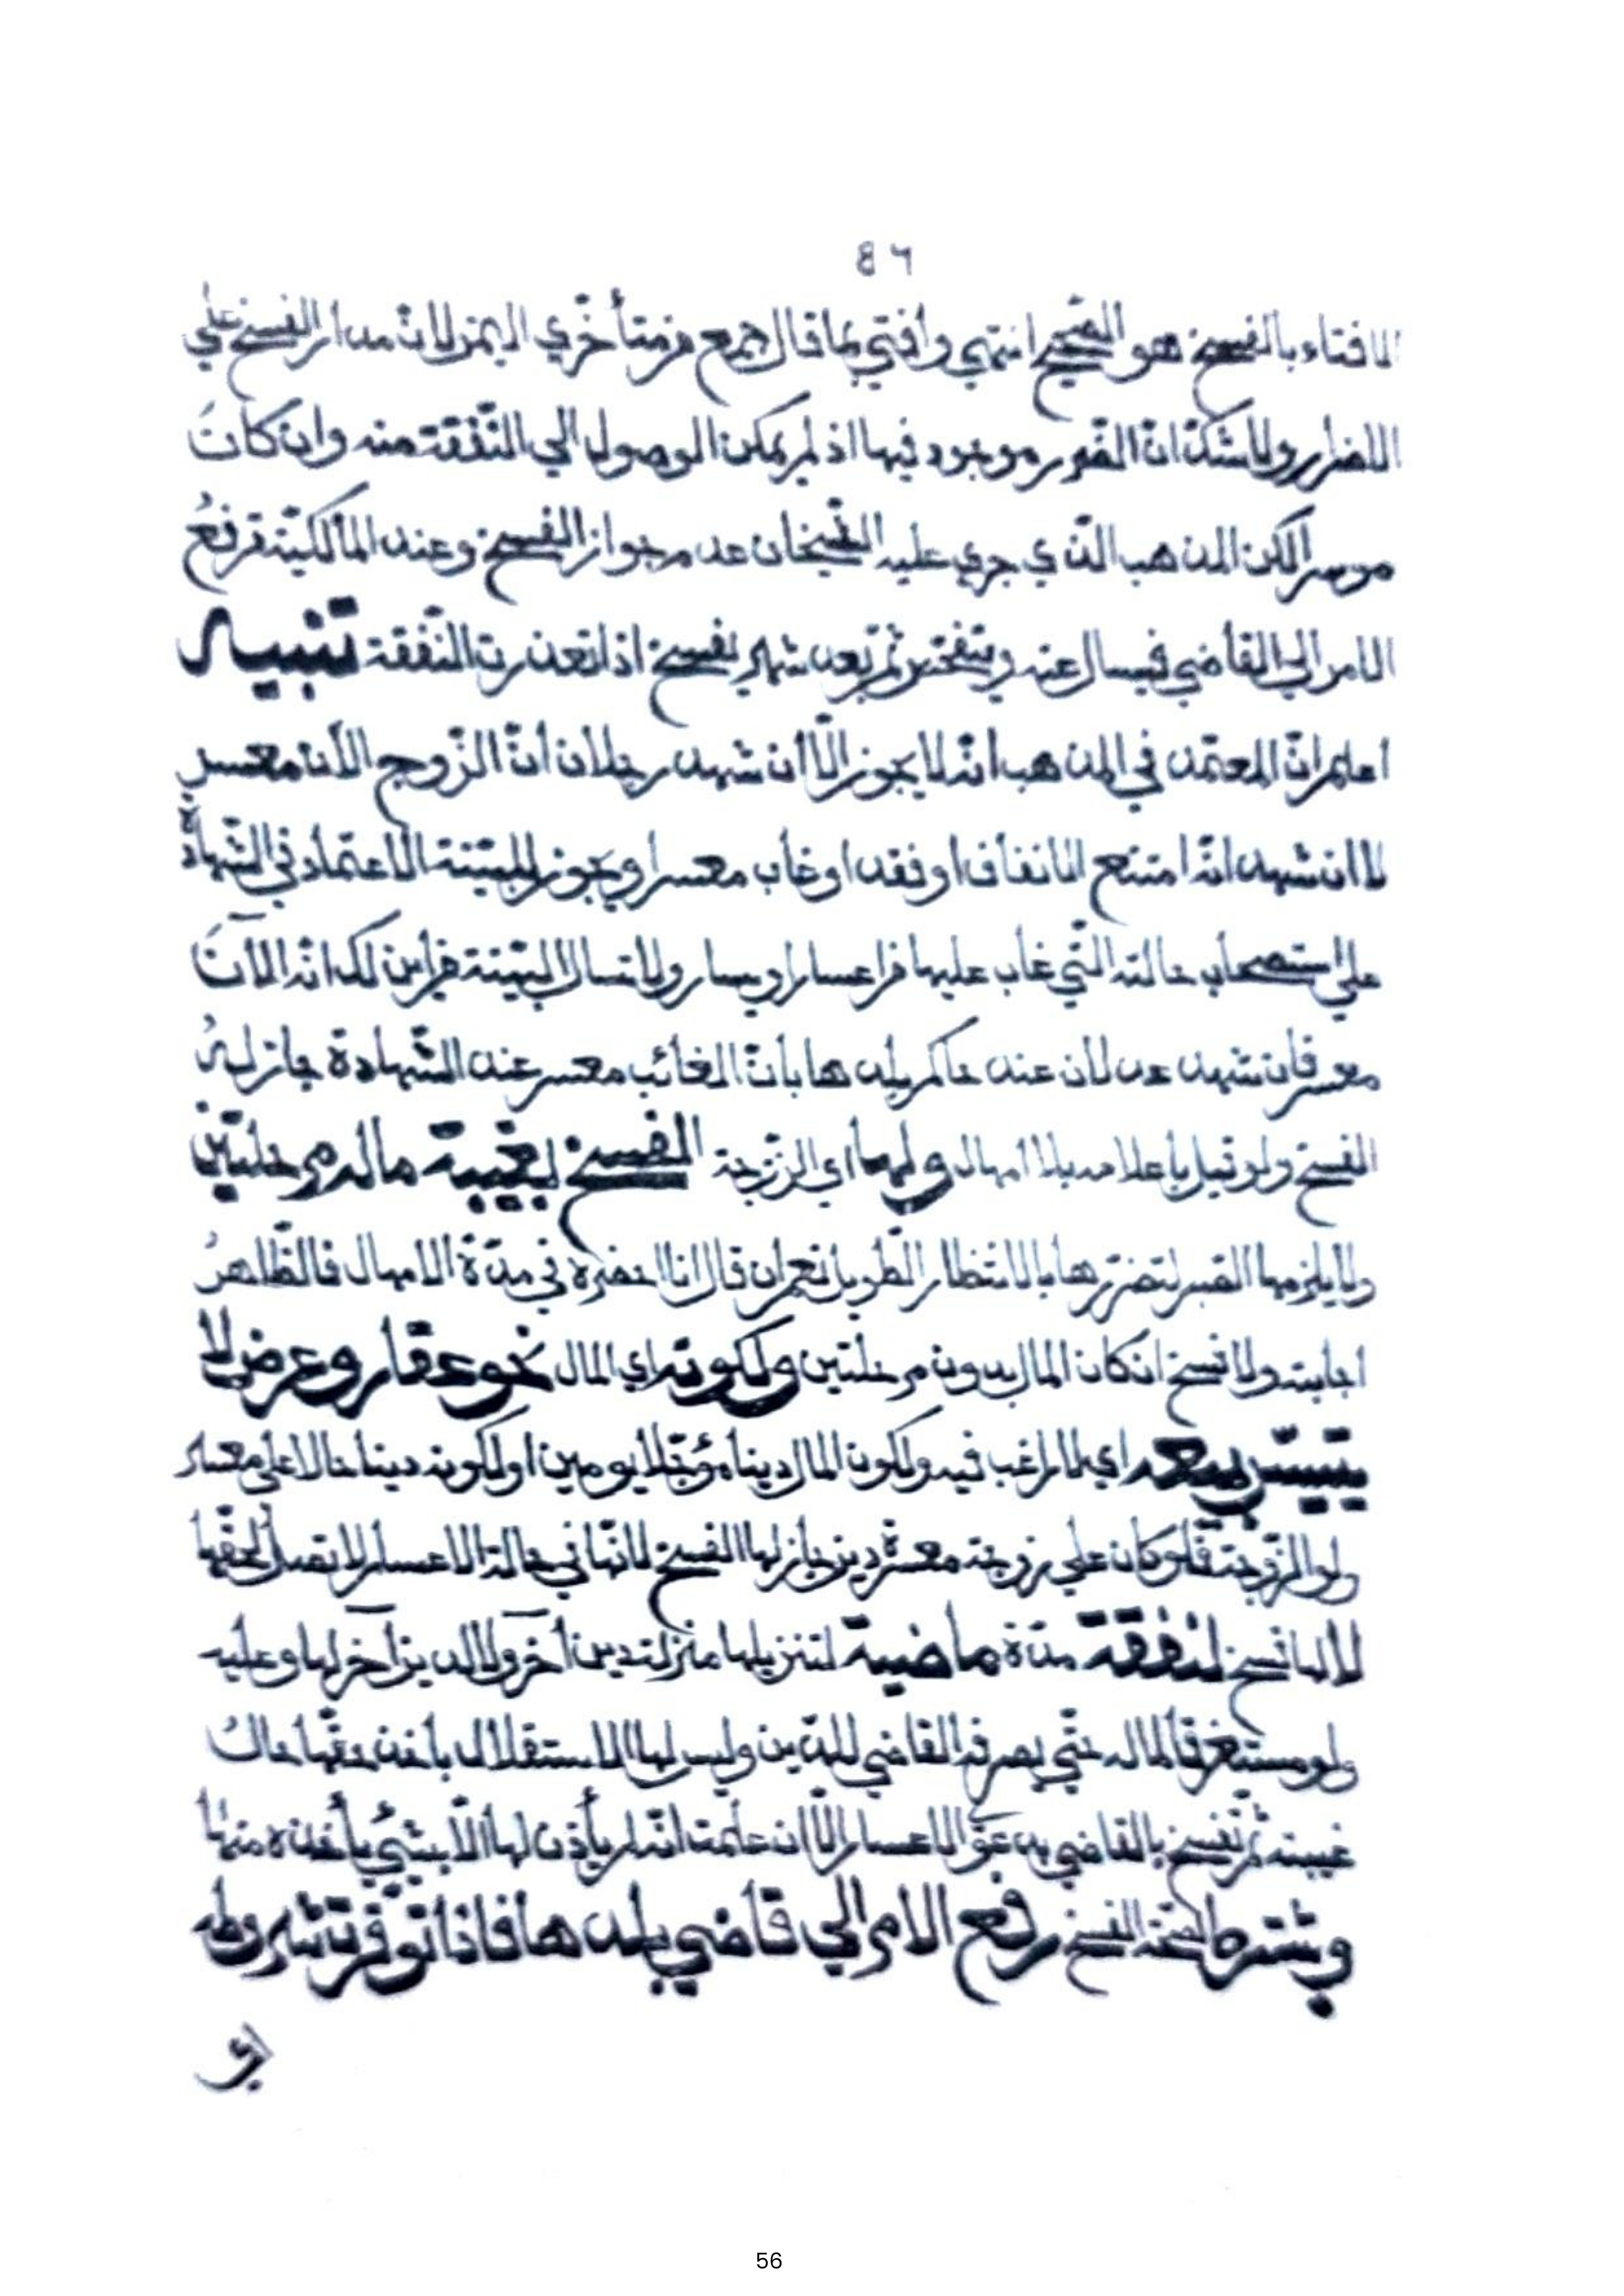 ٤٦
الافتاء بالفسخ هو الصّحيح انتهي وافتي بما قال جمع من متأخّري اليمن لانّ مدار الفسخ علي
الاضرار ولا شكّ انّ الضّرر موجود فيها اذ لم يمكن الوصول الي النّفقة منه وان كانَ
موسرا لكن المذهب الّذي جري عليه الشّيخان عدم جواز الفسخ وعند المالكيّة ترفعُ
الامر الي القاضي فيسال عنه ويتفحّص ثمّ بعد شهر يفسخ اذا تعذرت النّفقة تنبيه
اعلم انّ المعتمد في المذهب انّه لا يجوز الّا ان شهد رجلان انّ الزّوج الآن معسر
لا ان شهد انّه امتنع الانفاق او فقد او غاب معسرا ويجوز للبيّنة الاعتماد في الشّهادة
علي استصحاب حالته الّتي غاب عليها من اعسار او يسار ولا تسال البيّنة من اين لك انّه الآنَ
معسر فان شهد عدلان عند حاكم بلدها بانّ الغائب معسر عند الشّهادة جاز لهُ
الفسخ ولو قبل باعلامه بلا امهال ولها اي الزّوجة الفسخ لغيبة ماله مرحلتين
ولا يلزمها الصّبر لتضرّرها بالانتظار الطّويل نعم ان قال انا احضره في مدّة الامهال فالظّاهرُ
اجابته ولا فسخ ان كان المال بدون مرحلتين ولكونه اي المال نحو عقار وعرض لا
يتيسّر بيعه اي لما لم يرغب فيه ولكون المال دينا مؤجّلا يومين او لكونه دينا حالا علي معسر
ولو الزّوجة فلو كان علي زوجة معسرة دين جاز لها الفسخ لانّها في حالة الاعسار لا تصل لحقّها
لا لها فسخ لنفقة مدّة ماضية لتنزيلها منزلة دين آخر ولا لدين آخر لها وعليه
ولو مستغرقا لماله حتّي يصرفه القاضي للدّين وليس لها الاستقلال باخذ حقّها حال
غيبته ثمّ تفسخ بالقاضي بدعوّ الاعسار الّا ان علمت انّه لم يأذن لها الّا بشيئ يأخذه منها
ويشترط لصحّة الفسخ رفع الامر الي قاضي بلدها فاذا توفّرت شروطه
56